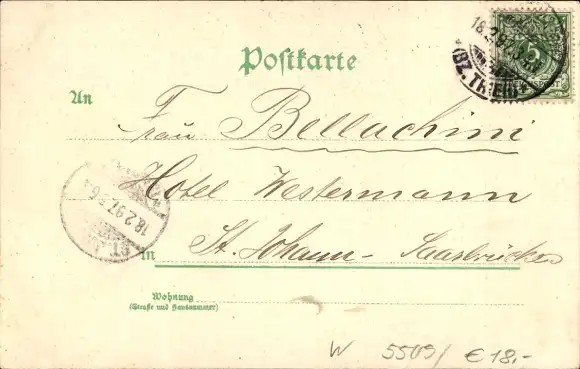 Postkarte
5
18.2.97
(BZ. TRIER)
An
Frau Bellachini
Hotel Westermann
18.2.97. 6
ST.
in St. Johann - Saarbrücken
Wohnung
(Straße und Hausnummer)
W 5509/ € 18,-